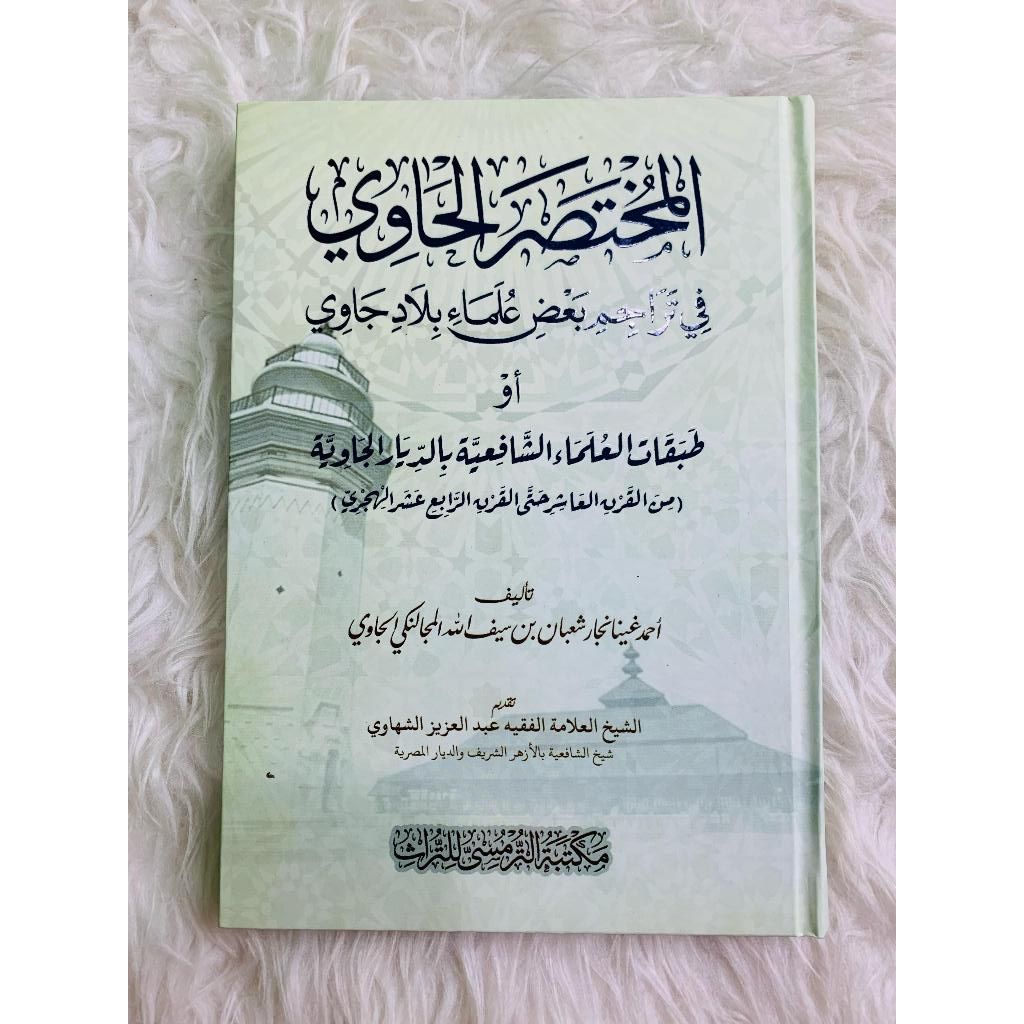 المُخْتَصَرُ الحَاوِي
فِي تَرَاجِمِ بَعْضِ عُلَمَاءِ بِلَادِ جَاوِي
أَوْ
طَبَقَاتُ العُلَمَاءِ الشَّافِعِيَّةِ بِالدِّيَارِ الجَاوِيَّةِ
(مِنَ القَرْنِ العَاشِرِ حَتَّى القَرْنِ الرَّابِعِ عَشَرَ الهِجْرِيِّ)
تأليف
أحمد غينانجار شعبان بن سيف الله المجالنكي الجاوي
تقديم
الشيخ العلامة الفقيه عبد العزيز الشهاوي
شيخ الشافعية بالأزهر الشريف والديار المصرية
مَكْتَبَةُ التُّرْمُسِيِّ لِلتُّرَاثِ